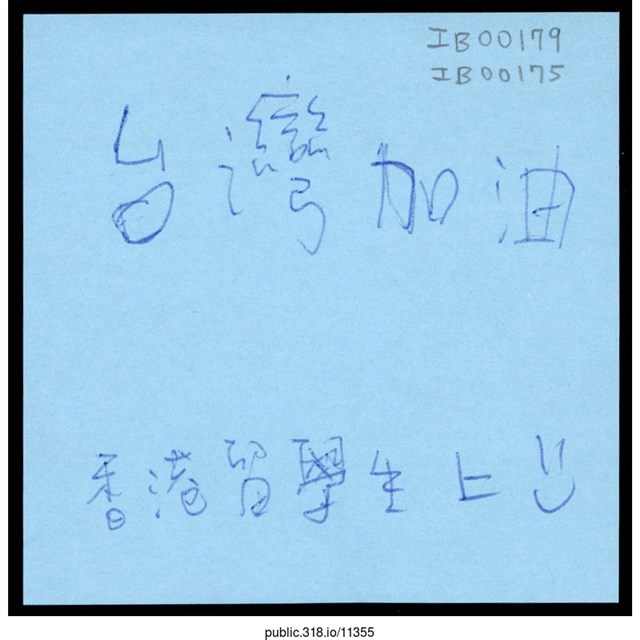 IB00179
IB00175
台灣加油
香港留學生上
public.318.io/11355